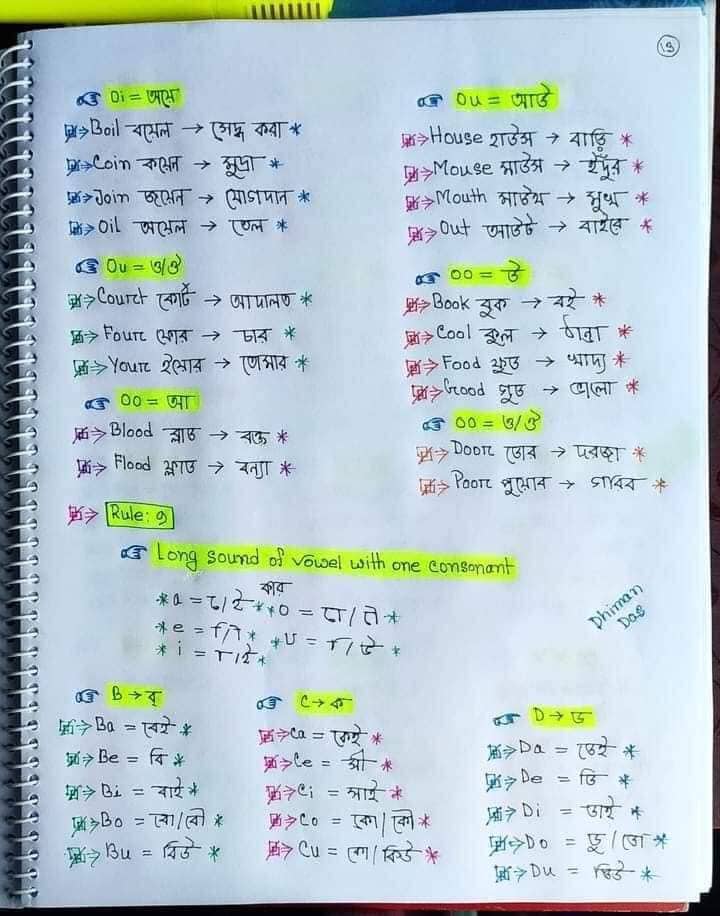 ১৩
Oi = অয়ে
Boil বয়েল → সেদ্ধ করা *
Coin কয়েন → মুদ্রা *
Join জয়েন → যোগদান *
Oil অয়েল → তেল *
Ou = ও/ঔ
Court কোর্ট → আদালত *
Four ফোর → চার *
Your ইয়োর → তোমার *
OO = আ
Blood ব্লাড → রক্ত *
Flood ফ্লাড → বন্যা *
Ou = আউ
House হাউস → বাড়ি *
Mouse মাউস → ইঁদুর *
Mouth মাউথ → মুখ *
Out আউট → বাইরে *
OO = উ
Book বুক → বই *
Cool কুল → ঠান্ডা *
Food ফুড → খাদ্য *
Good গুড → ভালো *
OO = ও/ঔ
Door ডোর → দরজা *
Poor পুয়োর → গরিব *
Rule: ១
Long sound of vowel with one consonant
কার
* a = ে/ই * * O = ো/ৌ *
* e = ি/ী * * U = ি/উ *
* i = া/ই *
Dhiman
Das
B → ব্
Ba = বেই *
Be = বি *
Bi = বাই *
Bo = বো/বৌ *
Bu = বিউ *
C → ক
Ca = কেই *
Ce = সী *
Ci = সাই *
Co = কো/কৌ *
Cu = কে/কিউ *
D → ড
Da = ডেই *
De = ডি *
Di = ডাই *
Do = ডু/ডো *
Du = ডিউ *